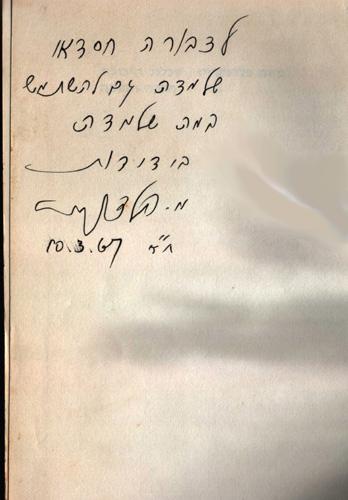 לדבורה חסדאי
שלמדה גם להשתמש
במה שלמדה
בידידות
מ.
ת"א 10.3.67